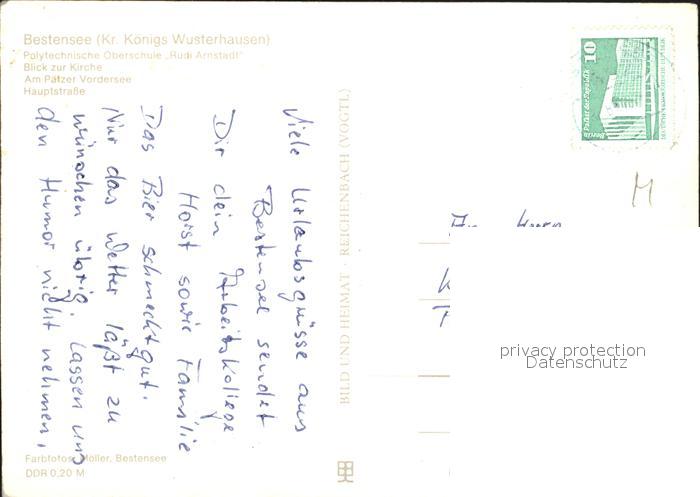 Bestensee (Kr. Königs Wusterhausen)
Polytechnische Oberschule „Rudi Arnstadt"
Blick zur Kirche
Am Pätzer Vordersee
Hauptstraße
Viele Urlaubsgrüsse aus
Bestensee sendet
Dir dein Arbeitskollege
Horst sowie Familie
Das Bier schmeckt gut.
Nur das Wetter läßt zu
wünschen übrig. Lassen uns
den Humor nicht nehmen,
Farbfotos: Möller, Bestensee
DDR 0,20 M
BILD UND HEIMAT · REICHENBACH (VOGTL)
10
Berlin, Palast der Republik
M
privacy protection
Datenschutz